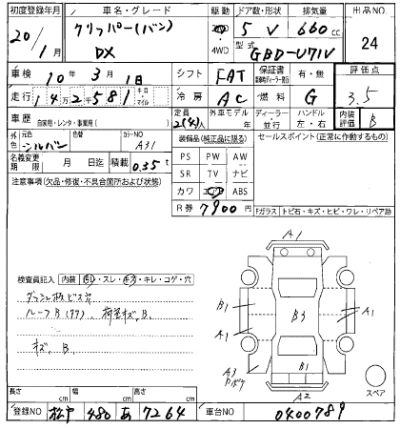 初度登録年月 車名・グレード 駆動 ドア数・形状 排気量 出品NO.
20/1月 クリッパー(バン) DX 2WD 4WD 5 V 660cc 24
型式 GBD-U71V
車検 10年3月1日 シフト FAT 保証書 有・無 評価点
走行 14万2千581 冷房 AC 燃料 G 3.5
車歴 自家用・レンタ・事業用( ) 定員 2(4)人 外車モデル 年 ディーラー・並行 ハンドル 左・右 内装評価 B
外色 シルバー 元色 カラーNO A31 装備品(純正品に限る) セールスポイント(正常に作動するもの)
名義変更期限 月 日迄 積載 0.35t PS PW AW
注意事項(欠品・修復・不具合箇所および状態) SR TV ナビ
カワ ABS
R券 7900
Fガラス トビ石・キズ・ヒビ・ワレ・リペア跡
A1
検査員記入 内装 ・スレ・ キレ・コゲ・穴
ダッシュ板ビス穴
B1 B3 A1
ルーフB 荷室キズ、B、
A1
キズ、B、
A3 B1
A2 スペア
長さ cm 幅 cm 高さ cm
登録NO 松戸 480 あ 7264 車台NO 0400789